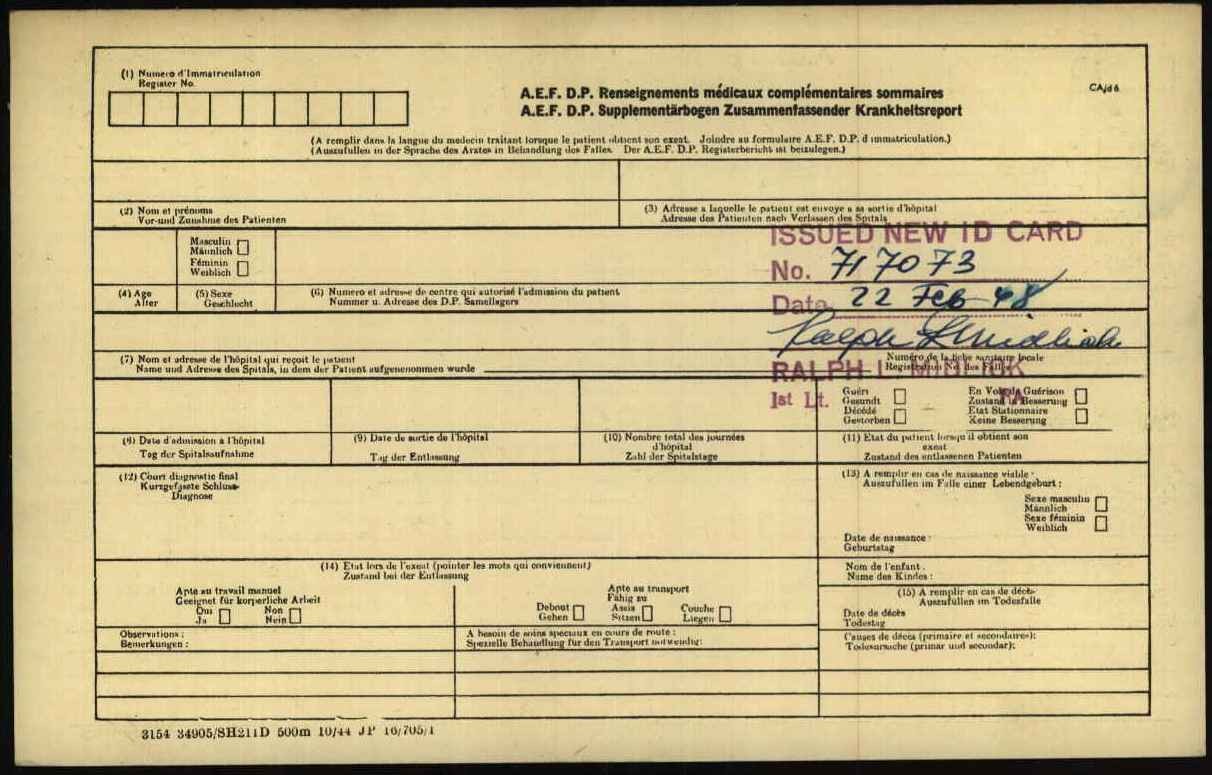 (1) Numero d'Immatriculation
Register No.
A.E.F. D.P. Renseignements médicaux complémentaires sommaires
A.E.F. D.P. Supplementärbogen Zusammenfassender Krankheitsreport
CAjd6
(A remplir dans la langue du medecin traitant lorsque le patient obtient son exeat. Joindre au formulaire A.E.F. D.P. d immatriculation.)
(Auszufullen in der Sprache des Arztes in Behandlung des Falles. Der A.E.F. D.P. Registerbericht ist beizulegen.)
(2) Nom et prénoms
Vor-und Zunahme des Patienten
(3) Adresse a laquelle le patient est envoye a sa sortie d'hôpital
Adresse des Patienten nach Verlassen des Spitals
ISSUED NEW ID CARD
No. 717073
Date 22 Feb 48
Masculin
Männlich
Féminin
Weiblich
(4) Age
Alter
(5) Sexe
Geschlecht
(6) Numero et adresse de centre qui autorisé l'admission du patient
Nummer u. Adresse des D.P. Samellagers
(7) Nom et adresse de l'hôpital qui reçoit le patient
Name und Adresse des Spitals, in dem der Patient aufgenommen wurde
Numéro de la fiche sanitaire locale
Registration No. des Falles
RALPH L
1st Lt. FA
Guéri
Gesundt
Décédé
Gestorben
En Voie de Guérison
Zustand in Besserung
Etat Stationnaire
Keine Besserung
(8) Date d'admission à l'hôpital
Tag der Spitalsaufnahme
(9) Date de sortie de l'hôpital
Tag der Entlassung
(10) Nombre total des journées
d'hôpital
Zahl der Spitalstage
(11) Etat du patient lorsqu'il obtient son
exeat
Zustand des entlassenen Patienten
(12) Court diagnostic final
Kurzgefasste Schluss-
Diagnose
(13) A remplir en cas de naissance viable :
Auszufullen im Falle einer Lebendgeburt :
Sexe masculin
Männlich
Sexe féminin
Weiblich
Date de naissance :
Geburtstag
(14) Etat lors de l'exeat (pointer les mots qui conviennent)
Zustand bei der Entlassung
Nom de l'enfant :
Name des Kindes :
Apte au travail manuel
Geeignet für korperliche Arbeit
Oui
Ja
Non
Nein
Apte au transport
Fähig zu
Debout
Gehen
Assis
Sitzen
Couche
Liegen
(15) A remplir en cas de décès
Auszufullen im Todesfalle
Date de décès
Todestag
Observations :
Bemerkungen :
A besoin de soins speciaux en cours de route :
Spezielle Behandlung für den Transport notwendig:
Causes de décès (primaire et secondaires):
Todesursache (primar und secundar):
3154 34905/SH211D 500m 10/44 JP 16/705/1